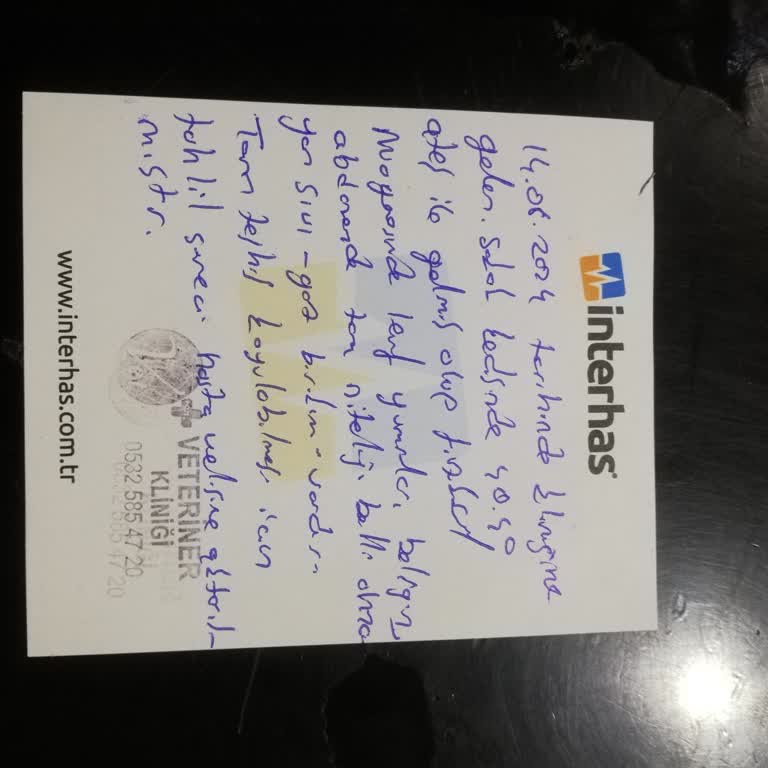 interhas
14.06.2024 tarihinde kliniğime
gelen. Sokak kedisinde 40.4°
ateş ile gelmiş olup fiziksel
Muayenesinde lenf yumruları belirgin
abdomende tam niteliği belli olma
yan sıvı - gaz birikimi vardır.
Tanı teşhis koyulabilmesi için
tahlil süreci hasta velisine aktarıl-
mıştır.
VETERİNER
KLİNİĞİ
0532 585 47 20
www.interhas.com.tr